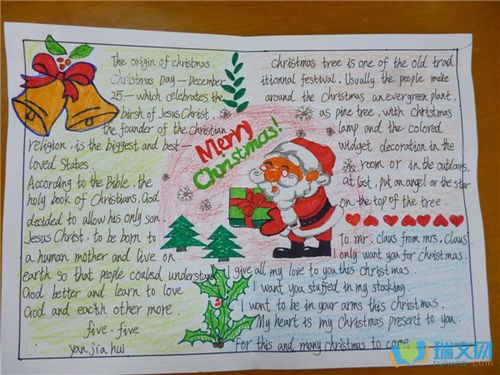 The origin of christmas.
Christmas Day — December
25 — which celebrates the
birth of Jesus Christ,
the founder of the Christian
religion, is the biggest and best—
loved States.
According to the Bible, the
holy book of Christians, God
decided to allow his only son,
Jesus Christ, to be born to
a human mother and live on
earth so that people could understand
God better and learn to love
God and each other more.
five. five
yan jia hui
Merry
Christmas!
Christmas tree is one of the old trad
itionnal festival. Usually the people make
around the Christmas an evergreen plant,
as pine tree, with Christmas
lamp and the colored
widget decoration in the
room or in the outdoors,
at last, put an angel or the star
on the top of the tree.
To mr. claus from mrs. claus
I only want you for christmas
I give all my love to you this christmas
I want you stuffed in my stocking.
I want to be in your arms this christmas.
My heart is my Christmas present to you.
For this and many christmas to come
瑞文网